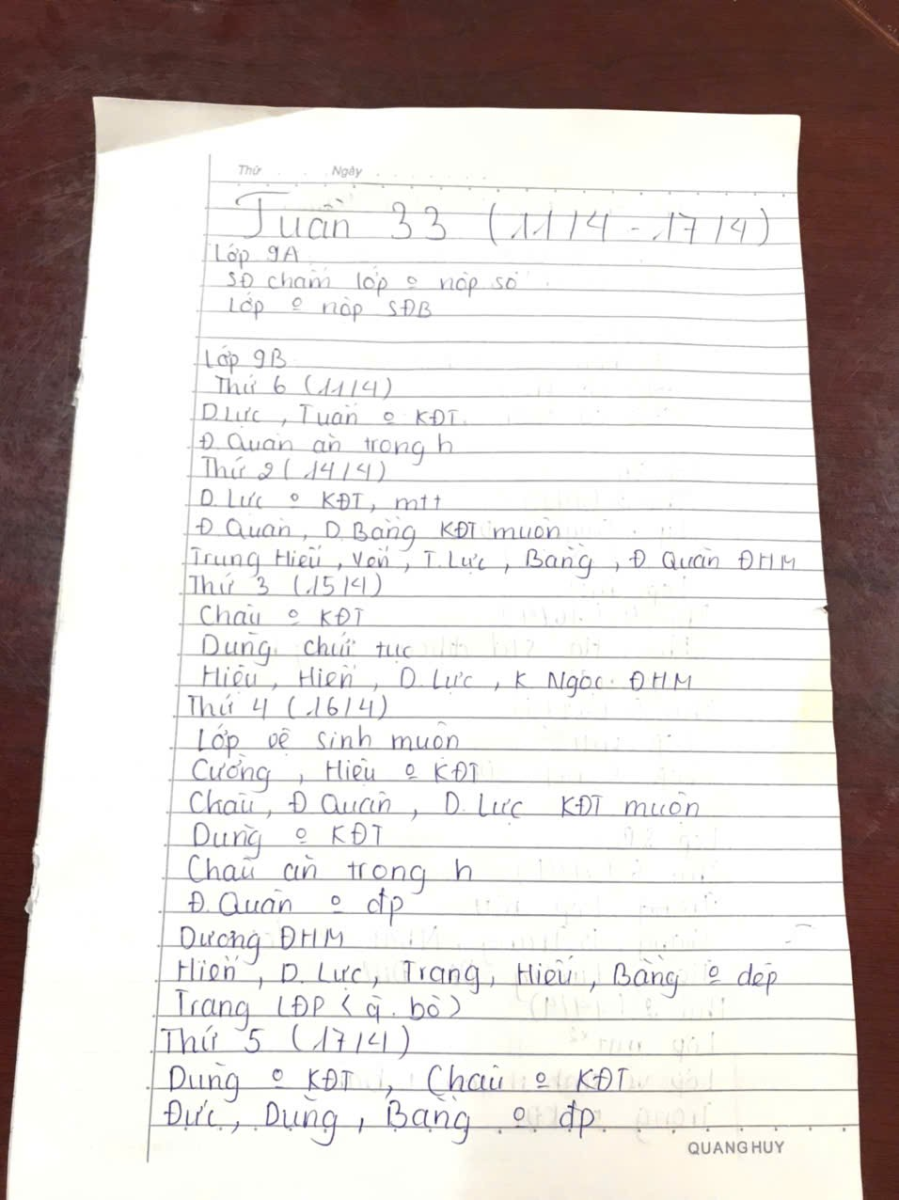 Thứ . . . . Ngày . . . . . . .
Tuần 33 (11/4 - 17/4)
Lớp 9A
SĐ chấm lớp o nộp sổ
Lớp o nộp SĐB
Lớp 9B
Thứ 6 (11/4)
D.Lực, Tuấn o KĐT.
Đ Quân ăn trong h
Thứ 2 (14/4)
D. Lực o KĐT, mtt
Đ. Quân, D. Bằng KĐT muộn
Trung Hiếu, Vấn, T. Lực, Bằng, Đ Quân ĐHM
Thứ 3 (15/4)
Châu o KĐT
Dũng chửi tục
Hiếu, Hiền, D. Lực, K Ngọc. ĐHM
Thứ 4 (16/4)
Lớp vệ sinh muộn
Cường, Hiếu o KĐT
Châu, Đ Quân, D. Lực KĐT muộn
Dũng o KĐT
Châu ăn trong h
Đ. Quân o đp
Dương ĐHM
Hiền, D. Lực, Trang, Hiếu, Bằng o dép
Trang LĐP (q. bò)
Thứ 5 (17/4)
Dũng o KĐT, Châu o KĐT
Đức, Dũng, Bằng o đp
QUANG HUY